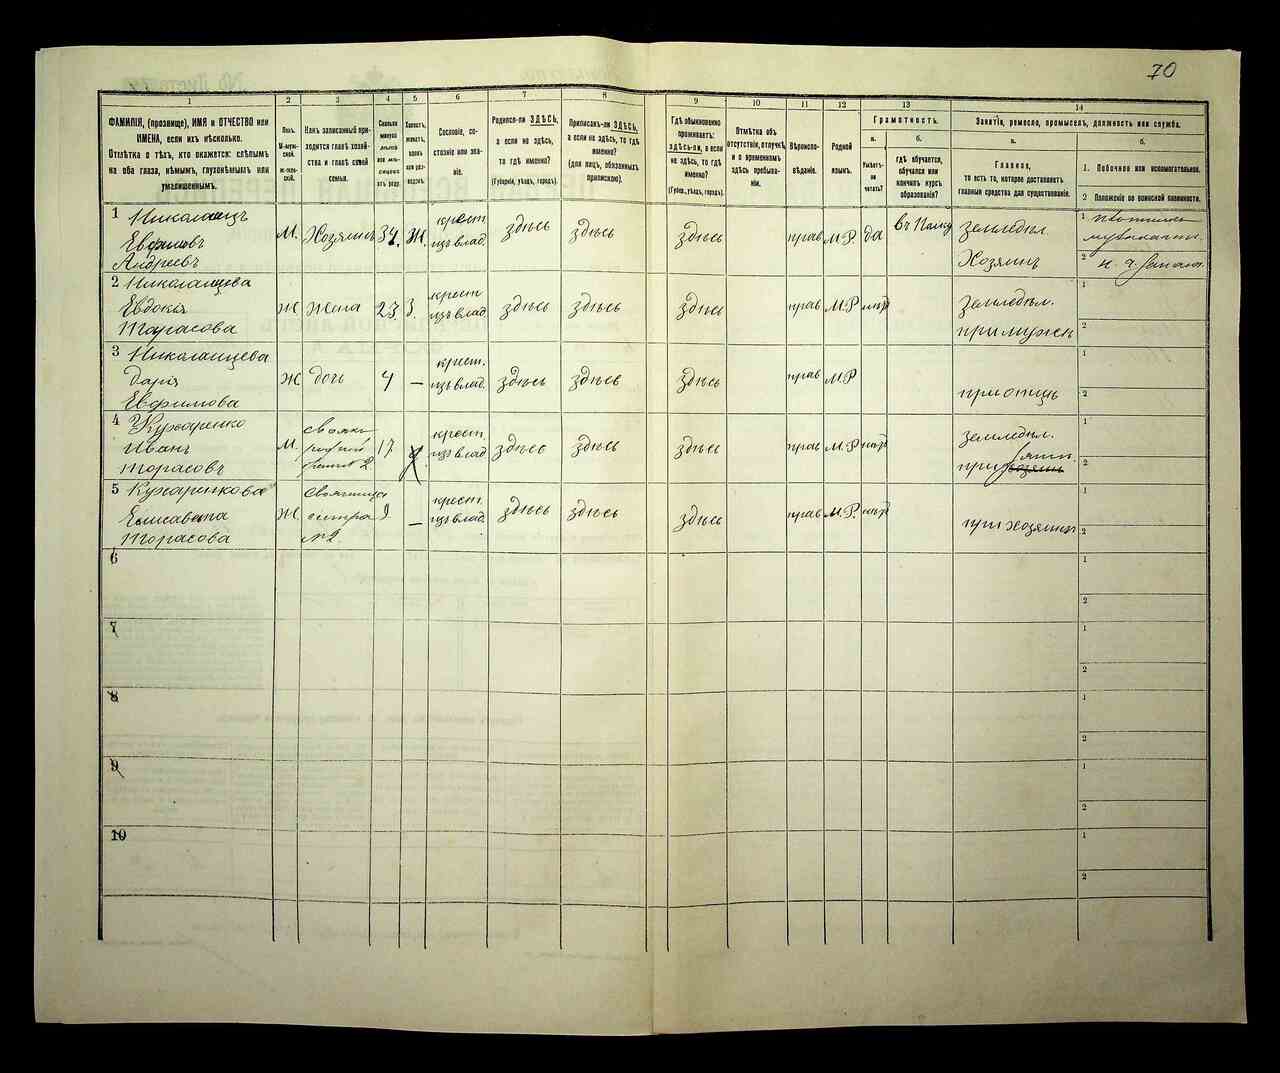 70
1 2 3 4 5 6 7 8 9 10 11 12 13 14
ФАМИЛІЯ, (прозвище), ИМЯ и ОТЧЕСТВО или
ИМЕНА, если ихъ нѣсколько.
Отмѣтка о тѣхъ, кто окажется: слѣпымъ
на оба глаза, нѣмымъ, глухонѣмымъ или
умалишеннымъ.
Полъ.
М-мужс-
кой.
Ж-жен-
скій.
Какъ записанный при-
ходится главѣ хозяй-
ства и главѣ своей
семьи.
Сколько
минуло
лѣтъ
или мѣ-
сяцевъ
отъ роду.
Холостъ,
женатъ,
вдовъ
или раз-
веденъ.
Сословіе, со-
стояніе или зва-
ніе.
Родился-ли ЗДѢСЬ,
а если не здѣсь,
то гдѣ именно?
(Губернія, уѣздъ, городъ).
Приписанъ-ли ЗДѢСЬ,
а если не здѣсь, то гдѣ
именно?
(для лицъ, обязанныхъ
припискою).
Гдѣ обыкновенно
проживаетъ:
здѣсь-ли, а если
не здѣсь, то гдѣ
именно?
(Губер., уѣздъ, городъ).
Отмѣтка объ
отсутствіи, отлучкѣ
и о временномъ
здѣсь пребыва-
ніи.
Вѣроиспо-
вѣданіе.
Родной
языкъ.
Грамотность.
а.
Умѣетъ-
ли
читать?
б.
гдѣ обучается,
обучался или
кончилъ курсъ
образованія?
Занятіе, ремесло, промыселъ, должность или служба.
а.
Главное,
то есть то, которое доставляетъ
главныя средства для существованія.
б.
1. Побочное или вспомогательное.
2 Положеніе по воинской повинности.
1 Николаецъ
Евфимъ
Андреевъ
М. Хозяинъ 34. Ж.
крест
изъ влад.
здѣсь здѣсь здѣсь прав М.Р. да
въ Полку
земледѣл.
Хозяинъ
1
2
2 Николайцева
Евдокія
Тарасова
Ж жена 23 З.
крест
изъ влад.
здѣсь здѣсь здѣсь прав М.Р нѣтъ
земледѣл.
при мужѣ
1
2
3 Николайцева
Дарія
Евфимова
Ж дочь 4 —
крест.
изъ влад.
здѣсь здѣсь здѣсь прав М.Р
при отцѣ
1
2
4 Кухаренко
Иванъ
Тарасовъ
М.
своякъ
родной
братъ № 2
17
крест.
изъ влад
здѣсь здѣсь здѣсь прав М.Р нѣтъ
земледѣл.
при хозяинѣ
зятѣ.
1
2
5 Кухаренкова
Елисавета
Тарасова
Ж
свояченица
сестра
№ 2
9 —
крест.
изъ влад.
здѣсь здѣсь здѣсь прав М.Р. нѣтъ
при хозяинѣ
2
6
1
2
7
1
2
8
1
2
9
1
2
10
1
2